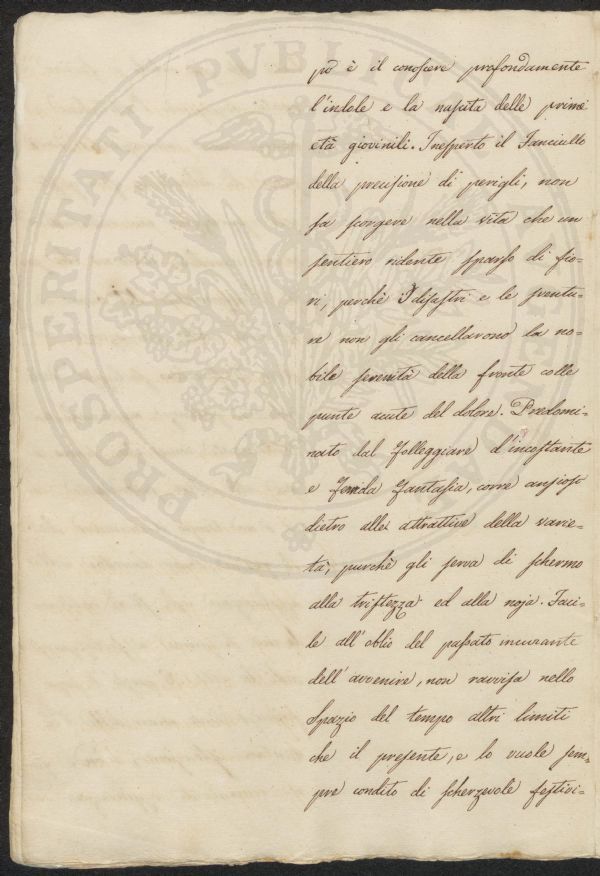 PROSPERITATI PUBLICAE
può è il conoscere profondamente
l'indole e la nascita delle prime
età giovinili. Inesperto il Fanciullo
della precisione di perigli, non
sa scorgere nella vita che un
sentiero ridente sparso di fio-
ri, perchè I disastri e le sventu-
re non gli cancellarono la no-
bile serenità della fronte colle
punte acute del dolore. Predomi-
nato dal folleggiare d'incostante
e fervida fantasia, corre ansioso
dietro alle attrattive della varie-
tà, purchè gli serva di schermo
alla tristezza ed alla noja. Faci-
le all'oblio del passato incurante
dell'avvenire, non ravvisa nello
Spazio del tempo altri limiti
che il presente, e lo vuole sem-
pre condito di scherzevole festivi-